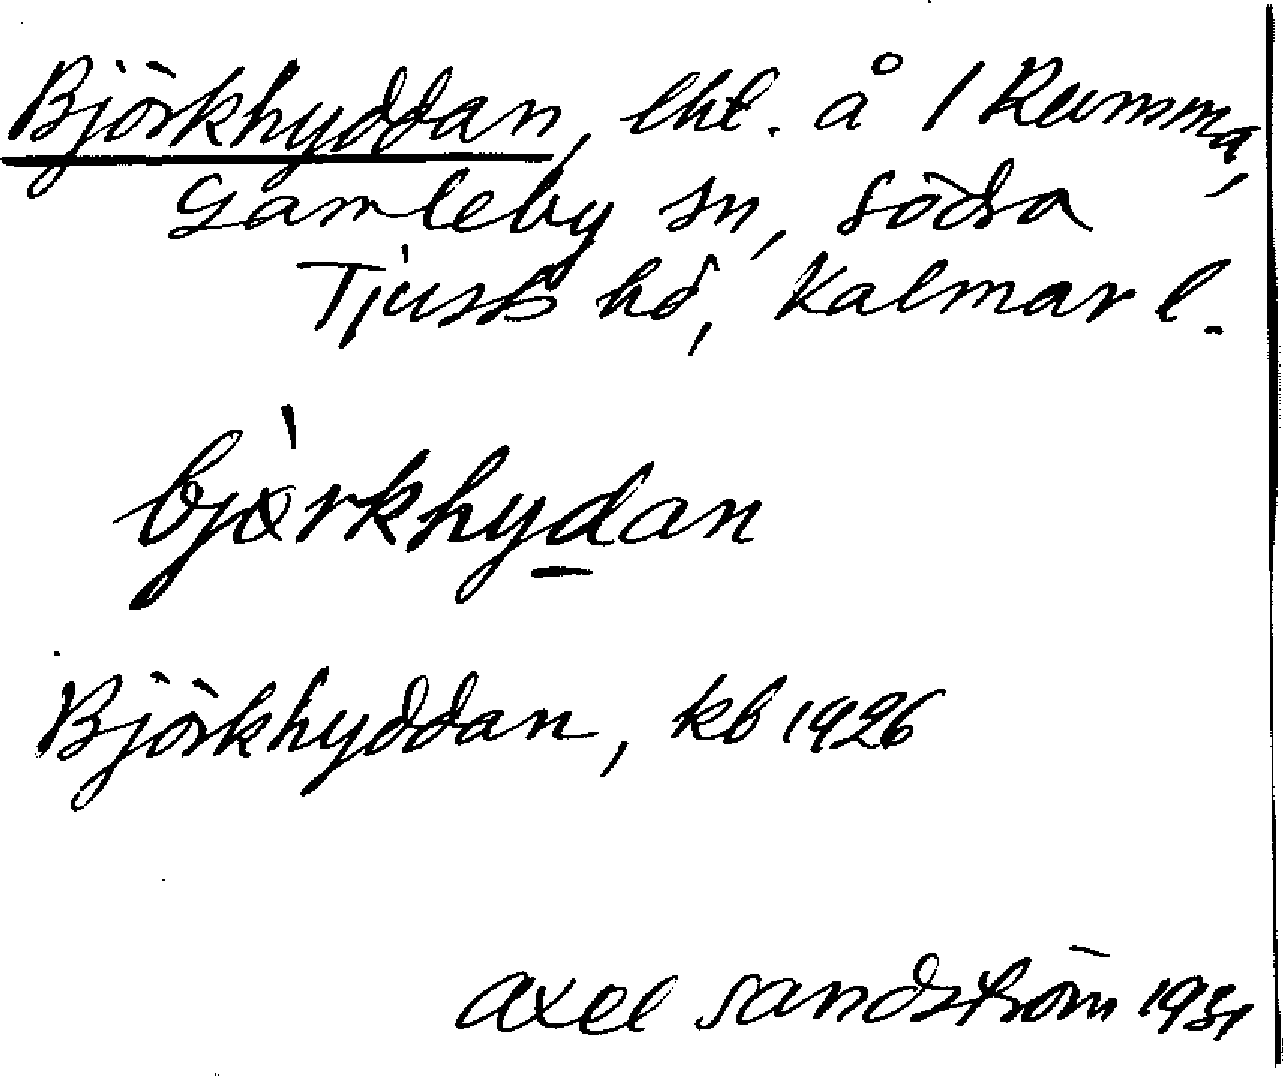 Björkhyddan, lht. å 1 Rumma,
Gamleby sn, Södra
Tjusts hd, Kalmar l.
bjö̀rkhydan
Björkhyddan, kb 1926
Axel Sandström 1931